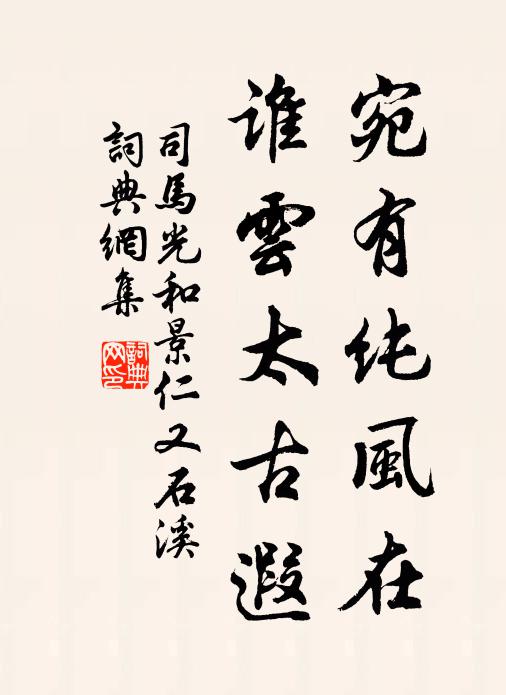 宛有純風在
誰雲太古遐
司馬光和景仁又石溪
詞典網集
詞典網印